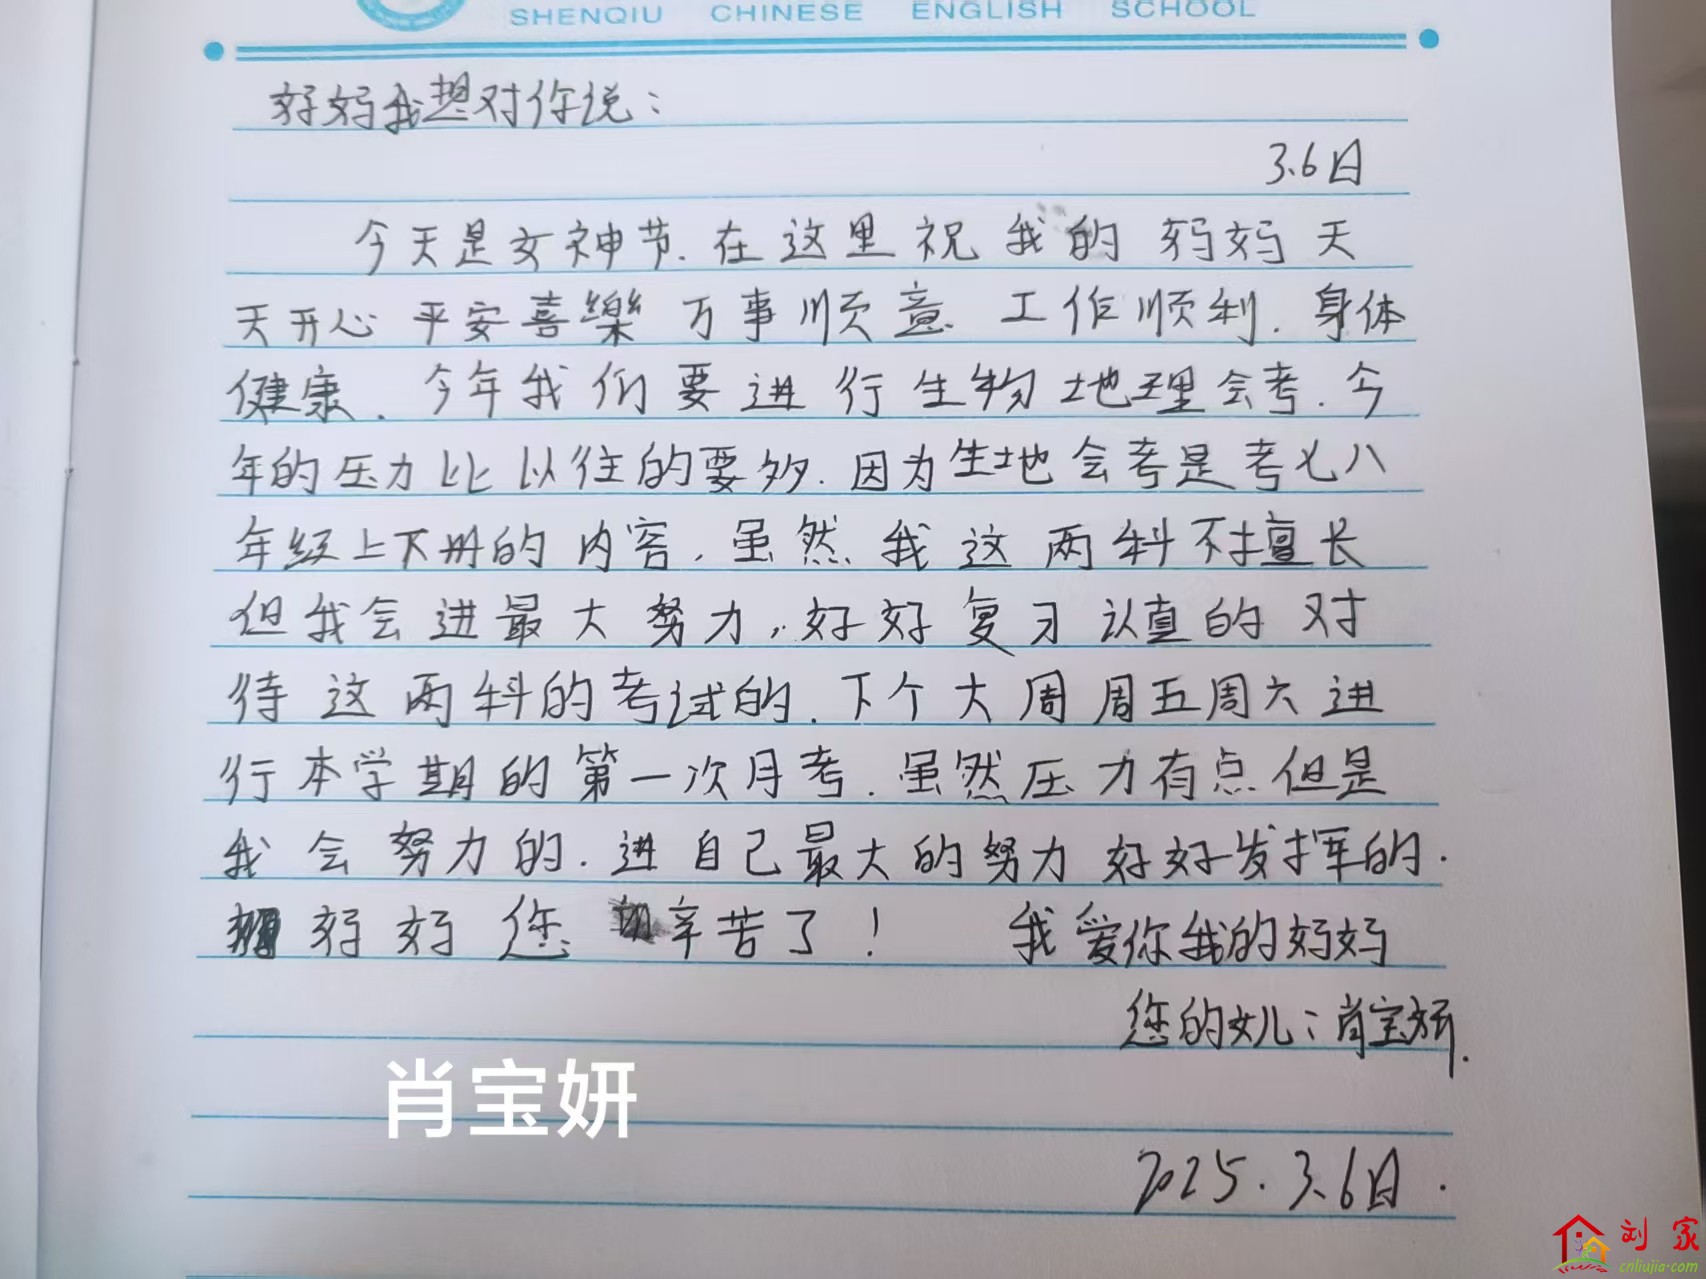 SHENQIU CHINESE ENGLISH SCHOOL
妈妈我想对你说：
3.6日
今天是女神节.在这里祝我的妈妈天
天开心平安喜樂万事顺意.工作顺利.身体
健康.今年我们要进行生物地理会考.今
年的压力比以往的要多.因为生地会考是考七八
年级上下册的内容,虽然我这两科不擅长
但我会进最大努力,好好复习认真的对
待这两科的考试的.下个大周周五周六进
行本学期的第一次月考.虽然压力有点但是
我会努力的.进自己最大的努力好好发挥的.
妈妈您辛苦了！ 我爱你我的妈妈
您的女儿：肖宝妍.
肖宝妍
2025.3.6日.
刘家
cnliujia.com